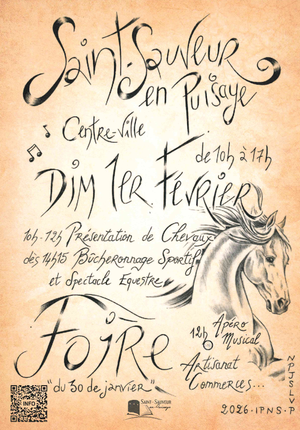 Saint-Sauveur
en Puisaye
Centre-Ville
de 10h à 17h
Dim 1er Février
10h-12h Présentation de Chevaux
dès 14h15 Bûcheronnage Sportif
et Spectacle Equestre
Foire
"du 30 de janvier"
12h Apéro
Musical
Artisanat
Commerces...
NPJSLVP
2026-IPNS-P
INFO
Saint-Sauveur
en Puisaye